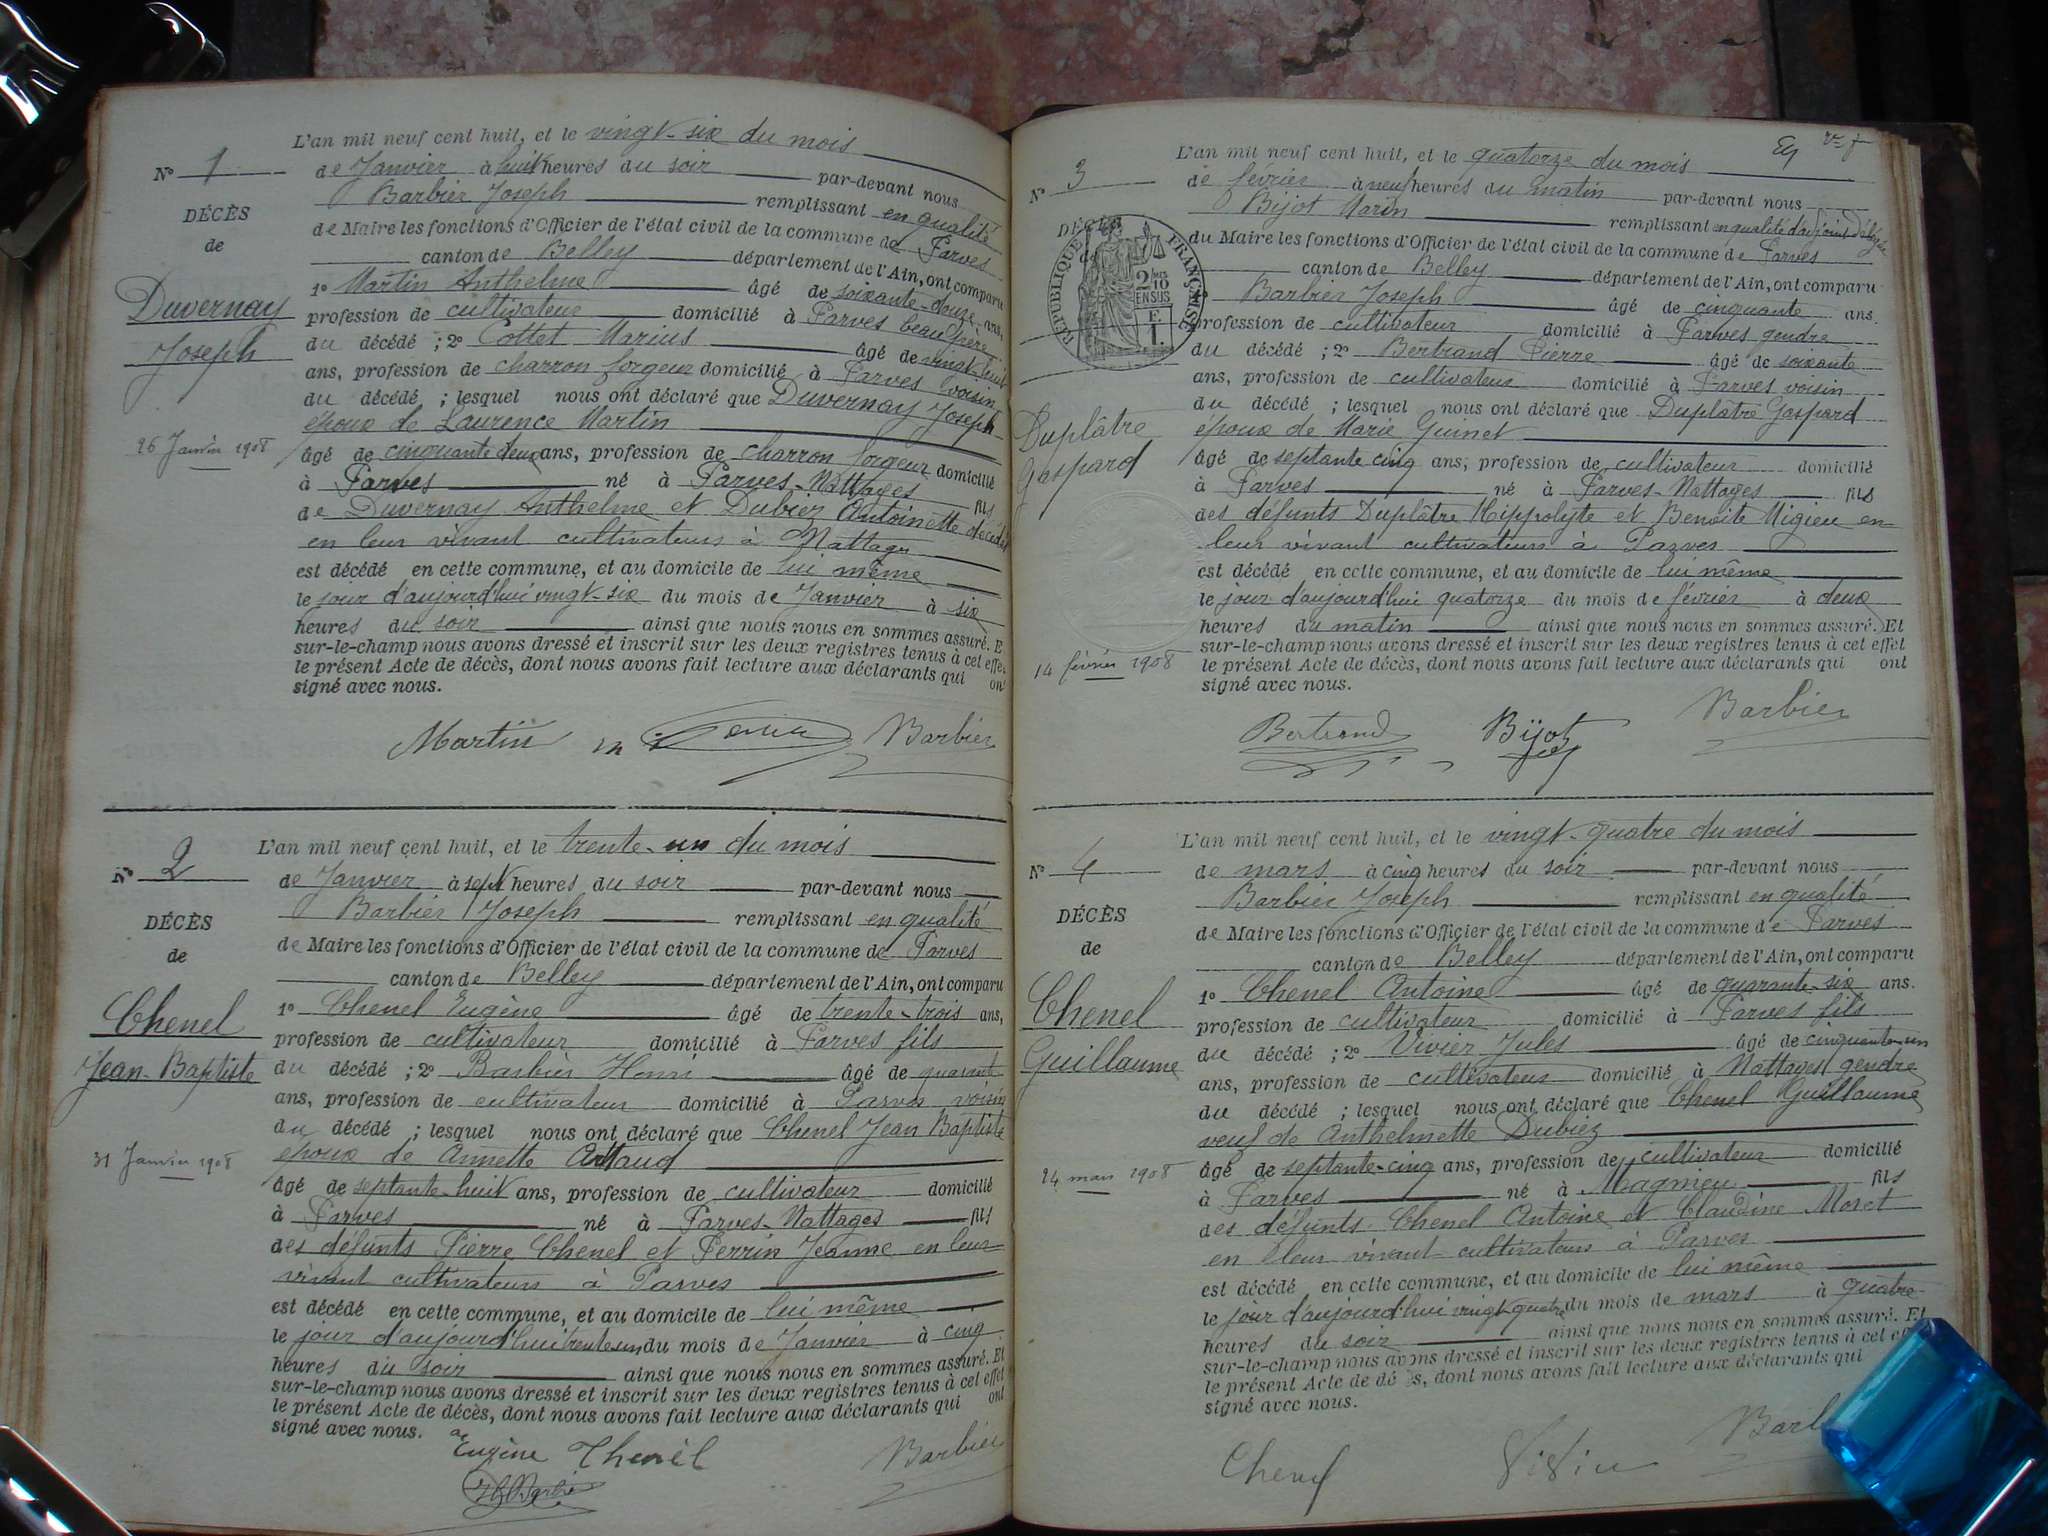 L'an mil neuf cent huit, et le vingt-six du mois
N° 1
de Janvier à huit heures du soir par-devant nous
Barbier Joseph remplissant en qualité
DÉCÈS
de Maire les fonctions d'Officier de l'état civil de la commune de Parves
de
canton de Belley département de l'Ain, ont comparu
1° Martin Anthelme âgé de soixante-douze ans,
Duvernay
profession de cultivateur domicilié à Parves beau père
Joseph
du décédé ; 2° Cottet Marius âgé de vingt-huit
ans, profession de charron forgeur domicilié à Parves voisin
du décédé ; lesquel nous ont déclaré que Duvernay Joseph
époux de Laurence Martin
26 Janvier 1908
âgé de cinquante deux ans, profession de charron forgeur domicilié
à Parves né à Parves-Nattages fils
de Duvernay Anthelme et Dubiez Antoinette décédés
en leur vivant cultivateurs à Nattages
est décédé en cette commune, et au domicile de lui même
le jour d'aujourd'hui vingt-six du mois de Janvier à six
heures du soir ainsi que nous nous en sommes assuré. E
sur-le-champ nous avons dressé et inscrit sur les deux registres tenus à cet effe
le présent Acte de décès, dont nous avons fait lecture aux déclarants qui on
signé avec nous.
Martin Barbier
L'an mil neuf cent huit, et le trente-un du mois
N° 2
de Janvier à sept heures du soir par-devant nous
Barbier Joseph remplissant en qualité
DÉCÈS
de Maire les fonctions d'Officier de l'état civil de la commune de Parves
de
canton de Belley département de l'Ain, ont comparu
Chenel
1° Chenel Eugène âgé de trente-trois ans,
profession de cultivateur domicilié à Parves fils
Jean-Baptiste
du décédé ; 2° Barbier Henri âgé de quarante
ans, profession de cultivateur domicilié à Parves voisin
du décédé ; lesquel nous ont déclaré que Chenel Jean Baptiste
31 Janvier 1908
époux de Annette Artaud
âgé de septante-huit ans, profession de cultivateur domicilié
à Parves né à Parves-Nattages fils
des défunts Pierre Chenel et Perrin Jeanne en leur
vivant cultivateurs à Parves
est décédé en cette commune, et au domicile de lui même
le jour d'aujourd'hui trente-un du mois de Janvier à cinq
heures du soir ainsi que nous nous en sommes assuré. Et
sur-le-champ nous avons dressé et inscrit sur les deux registres tenus à cet effet
le présent Acte de décès, dont nous avons fait lecture aux déclarants qui ont
signé avec nous.
Eugène Chenel Barbier
H Barbier
L'an mil neuf cent huit, et le quatorze du mois
N° 3
de février à neuf heures du matin par-devant nous
Bijot Marin remplissant en qualité d'adjoint délégué
DÉCÈS
du Maire les fonctions d'Officier de l'état civil de la commune de Parves
de
RÉPUBLIQUE FRANÇAISE
2/10 EN SUS
F. 1.
canton de Belley département de l'Ain, ont comparu
1° Barbier Joseph âgé de cinquante ans.
profession de cultivateur domicilié à Parves gendre
du décédé ; 2° Bertrand Pierre âgé de soixante
ans, profession de cultivateur domicilié à Parves voisin
du décédé ; lesquel nous ont déclaré que Duplâtre Gaspard
Duplâtre
époux de Marie Guinet
Gaspard
âgé de septante cinq ans, profession de cultivateur domicilié
à Parves né à Parves-Nattages fils
des défunts Duplâtre Hippolyte et Benoite Migieu en
leur vivant cultivateurs à Parves
est décédé en cette commune, et au domicile de lui même
le jour d'aujourd'hui quatorze du mois de février à deux
heures du matin ainsi que nous nous en sommes assuré. Et
sur-le-champ nous avons dressé et inscrit sur les deux registres tenus à cet effet
14 février 1908
le présent Acte de décès, dont nous avons fait lecture aux déclarants qui ont
signé avec nous.
Bertrand Bijot Barbier
L'an mil neuf cent huit, et le vingt-quatre du mois
N° 4
de mars à cinq heures du soir par-devant nous
Barbier Joseph remplissant en qualité
DÉCÈS
de Maire les fonctions d'Officier de l'état civil de la commune de Parves
de
canton de Belley département de l'Ain, ont comparu
1° Chenel Antoine âgé de quarante-six ans.
Chenel
profession de cultivateur domicilié à Parves fils
Guillaume
du décédé ; 2° Vivier Jules âgé de cinquante-un
ans, profession de cultivateur domicilié à Nattages gendre
du décédé ; lesquel nous ont déclaré que Chenel Guillaume
veuf de Anthelmette Dubiez
24 mars 1908
âgé de septante-cinq ans, profession de cultivateur domicilié
à Parves né à Magnieu fils
des défunts Chenel Antoine et Claudine Moret
en leur vivant cultivateurs à Parves
est décédé en cette commune, et au domicile de lui même
le jour d'aujourd'hui vingt-quatre du mois de mars à quatre
heures du soir ainsi que nous nous en sommes assuré. Et
sur-le-champ nous avons dressé et inscrit sur les deux registres tenus à cet eff
le présent Acte de décès, dont nous avons fait lecture aux déclarants qui
signé avec nous.
Chenel Barb